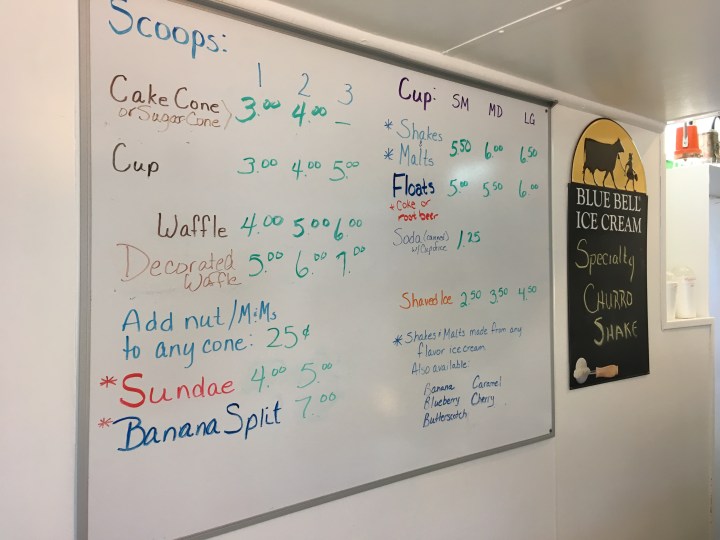 Scoops:
1 2 3
Cake Cone 3.00 4.00 —
or Sugar Cone
Cup 3.00 4.00 5.00
Waffle 4.00 5.00 6.00
Decorated 5.00 6.00 7.00
Waffle
Add nut/M&Ms
to any cone: 25¢
*Sundae 4.00 5.00
*Banana Split 7.00
Cup: SM MD LG
*Shakes
*Malts 5.50 6.00 6.50
Floats 5.00 5.50 6.00
*Coke or
root beer
Soda (canned) 1.25
w/ Cup of ice
Shaved Ice 2.50 3.50 4.50
*Shakes & Malts made from any
flavor ice cream
Also available:
Banana Caramel
Blueberry Cherry
Butterscotch
BLUE BELL
ICE CREAM
Specialty
CHURRO
SHAKE